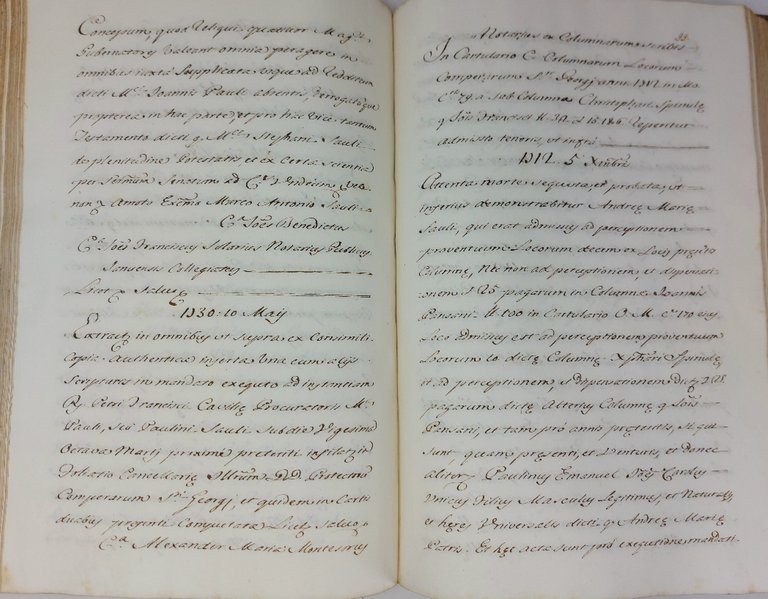 Concessum, quod Reliqui quatuor Mag.ci
Gubernatores valeant omnia peragere in
omnibus iuxta Supplicata usque ad Reditum
dicti M.ci Joannis Pauli absentis, derogatoque
propterea in hac parte, et pro hac vice tantum
Testamento dicti q. M.ci Stephani Pauli
de plenitudine Potestatis, et ex certa scientia
per Serenissimum Senatum ad
Amato Marco Antonio Sauli
C.a Jo̅es Benedictus
C.a Jo̅es Franciscus Solarius Notarius Publicus
Januensis Collegiatus
Licet Salvo
1730: 10 Maij
Extract. in omnibus ut supra ex Consimili
Copia Authentica inserta una cum alijs
Scripturis in mandato exequto ad instantiam
Petri Francisci Procuratoris M.ci
Pauli, seu Paulini Sauli sub die Vigesima
Octava Martij proxime preteriti in filatio
Cancellarie Illu̅m DD. Protectorum
Comperarum S.ti Georgij, et quidem in Cartis
duabus presenti Computata Licet Salvo
C.a Alexander Maria Montesortus
33.
Notarius ex Columnarum scribis
In Cartulario C. Columnarum Locorum
Comperarum S.ti Georgij anni 1712 in M.o
C.ta 79 a sub Columna Christophari Spinule
q. Jo̅is Francisci L. 32. 15.186. Reperitur
admisso tenoris, ut infra
1712. 5 Xmbris
Attenta morte sequuta, et probata, ut
inferius demonstrabitur Andreę Marię
Sauli, qui erat admissus ad perceptionem
proventuum Locorum decem ex Locis presentis
Columnę, Nec non ad perceptionem, et dispensati-
onem 25 pagarum in Columna Joannis
Pansani L. 100 in Cartulario O. M. C.ta 170 eius
Loco admissus est ad perceptionem proventuum
Locorum 10 dictę Columnę Xphari Spinulę
et ad perceptionem, et dispensationem dictis 25
pagarum dictę Alterius Columnę q. Jo̅is
Pansani, et tam pro annis pręteritis, si qui
sunt quam pręsenti, et venturis, et donec
aliter Paulinus Emanuel
Unicus Filius Masculus Legitimus, et Naturalis,
et hęres Universalis dicti q. Andreę Marię
Patris. Et hęc acta sunt pro exequtione mandati